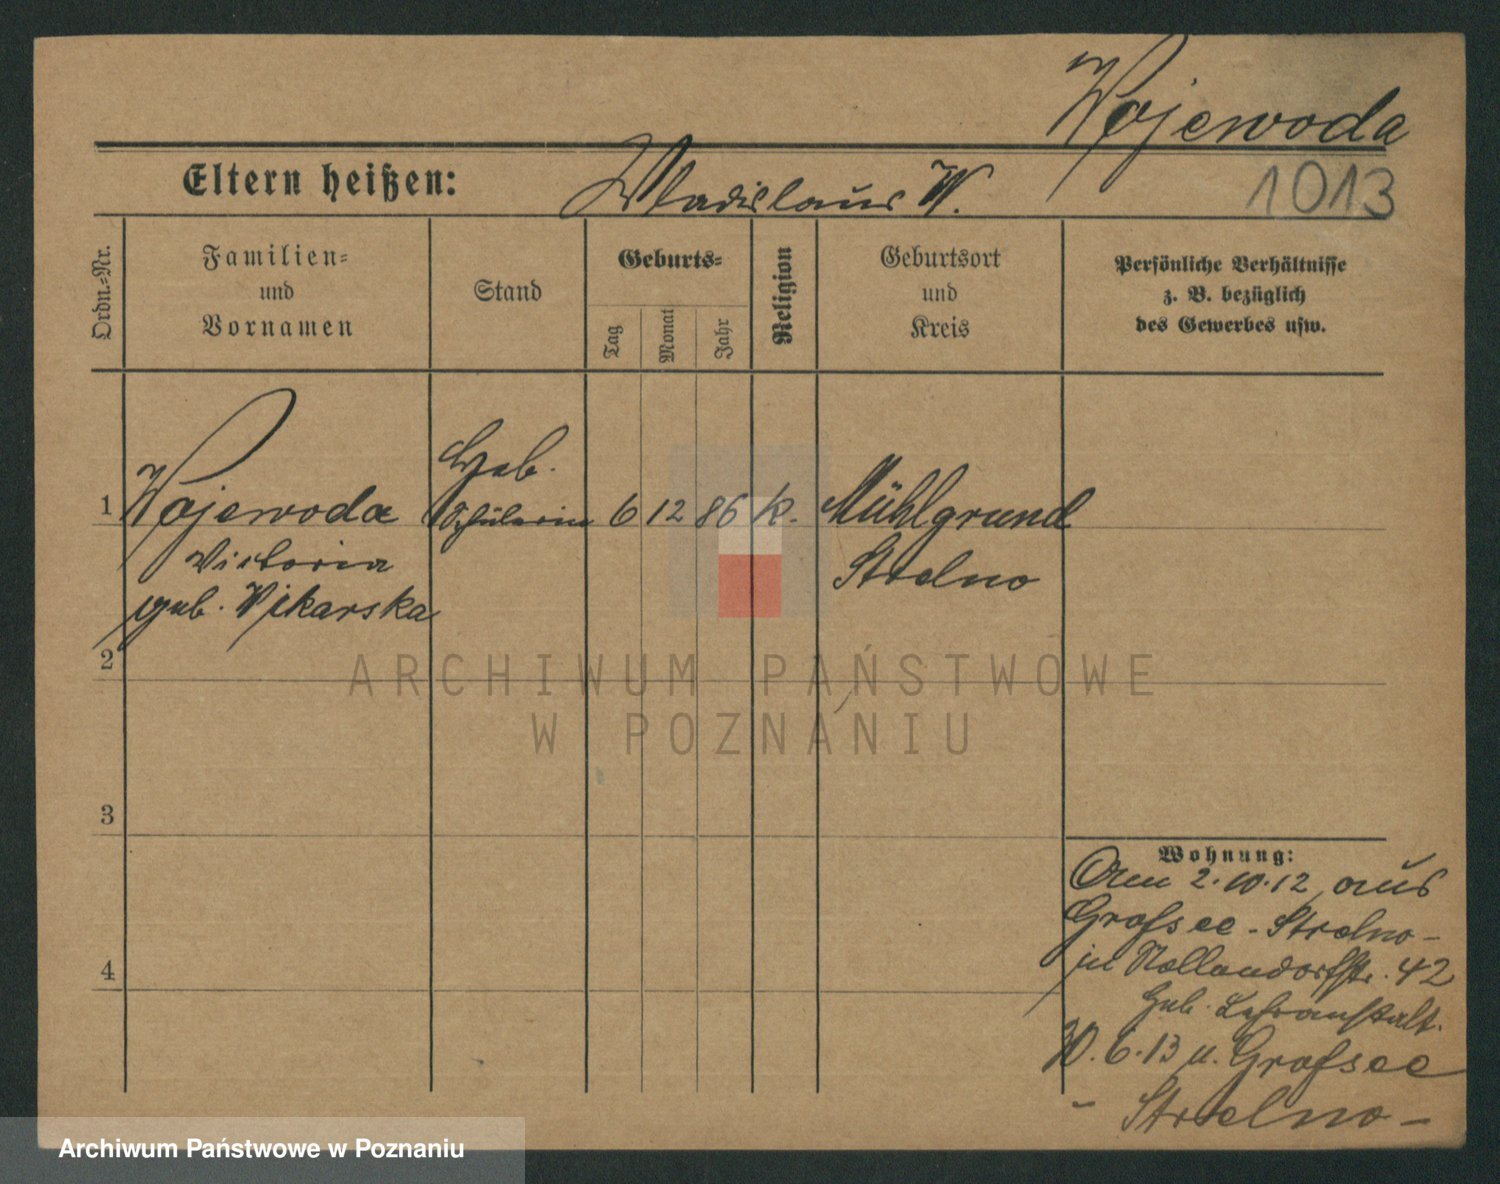 Wojewoda
Eltern heißen: Wladislaus W.
1013
Ordn.-Nr.
Familien-
und
Vornamen
Stand
Geburts-
Tag
Monat
Jahr
Religion
Geburtsort
und
Kreis
Persönliche Verhältnisse
z. B. bezüglich
des Gewerbes usw.
Heb.
1 Wojewoda Schülerin 6 12 86 k. Mühlgrund
Victoria Strelno
geb. Wikarska
2
ARCHIWUM PAŃSTWOWE
W POZNANIU
3
4
Wohnung:
Am 2.10.12 aus
Großsee - Strelno -
in Nollendorfstr. 42
Heb. Lehranstalt.
30.6.13 n. Großsee
- Strelno -
Archiwum Państwowe w Poznaniu